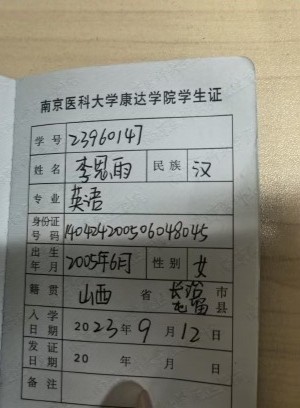 南京医科大学康达学院学生证
学号 23960147
姓名 李思雨 民族 汉
专业 英语
身份证号码 140424200506048045
出生年月 2005年6月 性别 女
籍贯 山西 省 长治屯留 市县
入学日期 2023年9月12日
发证日期 20 年 月 日
备注